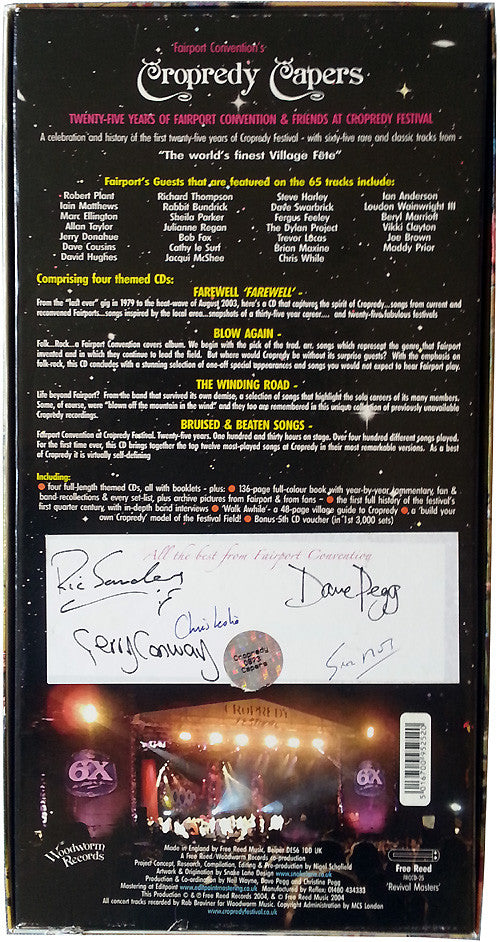 Fairport Convention's
Cropredy Capers
TWENTY-FIVE YEARS OF FAIRPORT CONVENTION & FRIENDS AT CROPREDY FESTIVAL
A celebration and history of the first twenty-five years of Cropredy Festival - with sixty-five rare and classic tracks from -
"The world's finest Village Fête"
Fairport's Guests that are featured on the 65 tracks include:
Robert Plant Richard Thompson Steve Harley Ian Anderson
Iain Matthews Rabbit Bundrick Dave Swarbrick Loudon Wainwright III
Marc Ellington Sheila Parker Fergus Feeley Beryl Marriott
Allan Taylor Julianne Regan The Dylan Project Vikki Clayton
Jerry Donahue Bob Fox Trevor Lucas Joe Brown
Dave Cousins Cathy le Surf Brian Maxine Maddy Prior
David Hughes Jacqui McShee Chris While
Comprising four themed CDs:
FAREWELL 'FAREWELL' -
From the "last ever" gig in 1979 to the heat-wave of August 2003, here's a CD that captures the spirit of Cropredy...songs from current and
reconvened Fairports...songs inspired by the local area...snapshots of a thirty-five year career.... and twenty-five fabulous festivals
BLOW AGAIN -
Folk...Rock...a Fairport Convention covers album. We begin with the pick of the trad. arr. songs which represent the genre that Fairport
invented and in which they continue to lead the field. But where would Cropredy be without its surprise guests? With the emphasis on
folk-rock, this CD concludes with a stunning selection of one-off special appearances and songs you would not expect to hear Fairport play.
THE WINDING ROAD -
Life beyond Fairport? From the band that survived its own demise, a selection of songs that highlight the solo careers of its many members.
Some, of course, were "blown off the mountain in the wind" and they too are remembered in this unique collection of previously unavailable
Cropredy recordings.
BRUISED & BEATEN SONGS -
Fairport Convention at Cropredy Festival. Twenty-five years. One hundred and thirty hours on stage. Over four hundred different songs played.
For the first time ever, this CD brings together the top twelve most-played songs at Cropredy in their most remarkable versions. As a best
of Cropredy it is virtually self-defining
Including:
● four full-length themed CDs, all with booklets - plus: ● 136-page full-colour book with year-by-year commentary, fan &
band-recollections & every set-list, plus archive pictures from Fairport & from fans - ● the first full history of the festival's
first quarter century, with in-depth band interviews ● 'Walk Awhile'- a 48-page village guide to Cropredy ● a 'build your
own Cropredy' model of the Festival Field! ● Bonus-5th CD voucher (in 1st 3,000 sets)
All the best from Fairport Convention
Ric Sanders
Dave Pegg
Chris Leslie
Gerry Conway
Cropredy
0873
Capers
CROPREDY
Festival
6X
6X
Woodworm
Records
Made in England by Free Reed Music, Belper DE56 1DD UK
A Free Reed. Woodworm Records co-production
Project Concept, Research, Compilation, Editing & Pre-production by Nigel Schofield
Artwork & Origination by Snake Lane Design www.snakelane.co.uk
Production & Co-ordination by Neil Wayne, Dave Pegg and Christine Pegg
Mastering at Editpoint www.editpointmastering.co.uk Manufactured by Reflex: 01480 434333
This Production © & ℗ Free Reed Records 2004, & © Free Reed Music 2004
All concert tracks recorded by Rob Braviner for Woodworm Music. Copyright Administration by MCS London
www.cropredyfestival.co.uk
Free Reed
FRCCD-25
'Revival Masters'